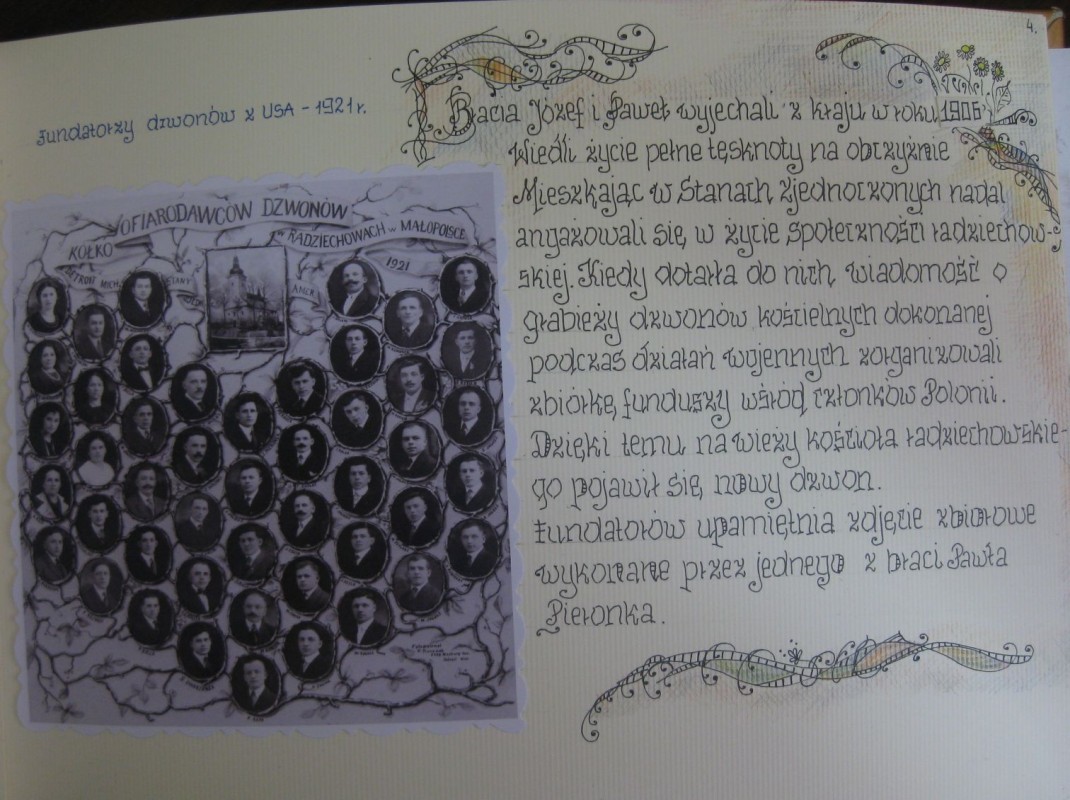 4.
Fundatorzy dzwonów z USA - 1921 r.
OFIARODAWCÓW DZWONÓW
KÓŁKO
w RADZIECHOWACH w MAŁOPOLSCE
1921
DETROIT MICH.
STANY
Bracia Józef i Paweł wyjechali z kraju w roku 1906.
Wiedli życie pełne tęsknoty na obczyźnie
Mieszkając w Stanach Zjednoczonych nadal
angażowali się w życie społeczności radziechow-
skiej. Kiedy dotarła do nich wiadomość o
grabieży dzwonów kościelnych dokonanej
podczas działań wojennych zorganizowali
zbiórkę funduszy wśród członków Polonii.
Dzięki temu na wieży kościoła radziechowskie-
go pojawił się nowy dzwon.
Fundatorów upamiętnia zdjęcie zbiorowe
wykonane przez jednego z braci Pawła
Pieronka.